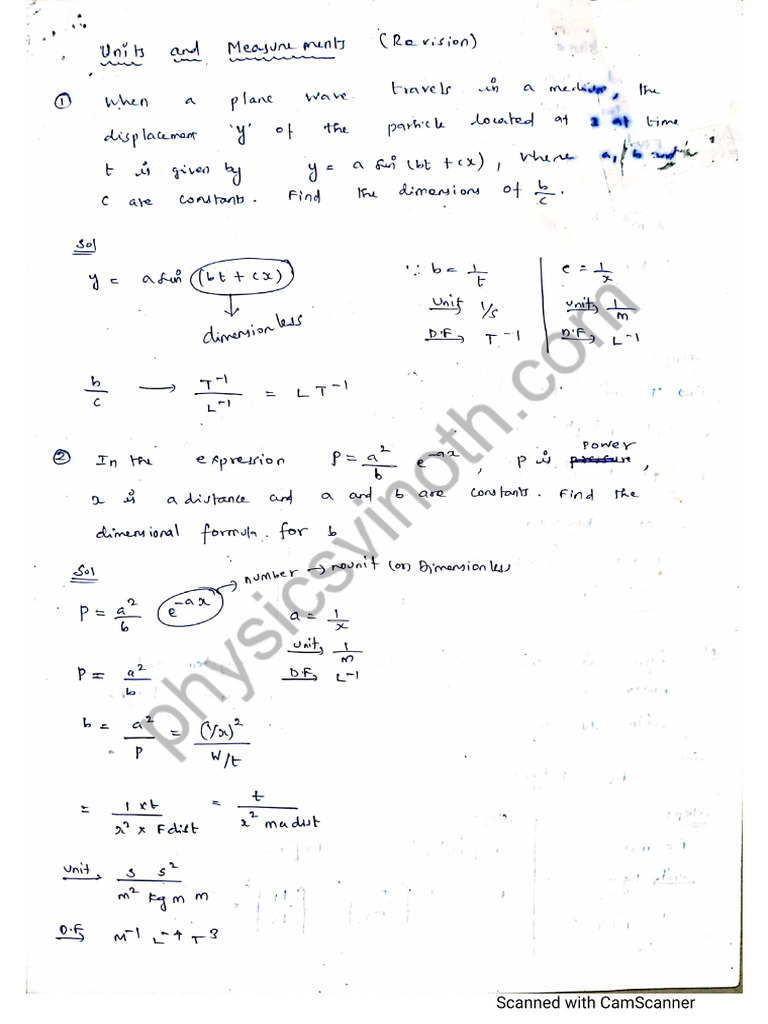 Units and Measurements (Revision)
① When a plane wave travels in a medium, the
displacement 'y' of the particle located at x at time
t is given by y = a sin (bt + cx), where a, b and
c are constants. Find the dimensions of b/c.
Sol
y = a sin (bt + cx)
dimensionless
∵ b = 1/t
Unit → 1/s
D.F → T⁻¹
c = 1/x
Unit → 1/m
D.F → L⁻¹
b/c → T⁻¹/L⁻¹ = L T⁻¹
② In the expression P = a²/b e⁻ᵃˣ, P is pressure power,
x is a distance and a and b are constants. Find the
dimensional formula for b
Sol
P = a²/b e⁻ᵃˣ → number → no unit (or) Dimensionless
a = 1/x
Unit → 1/m
D.F → L⁻¹
P = a²/b
b = a²/P = (1/x)²/W/t
= 1 × t/x² × F dist = t/x² ma dist
Unit → s s²/m² kg m m
D.F → M⁻¹ L⁻⁴ T³
physicsvinoth.com
Scanned with CamScanner